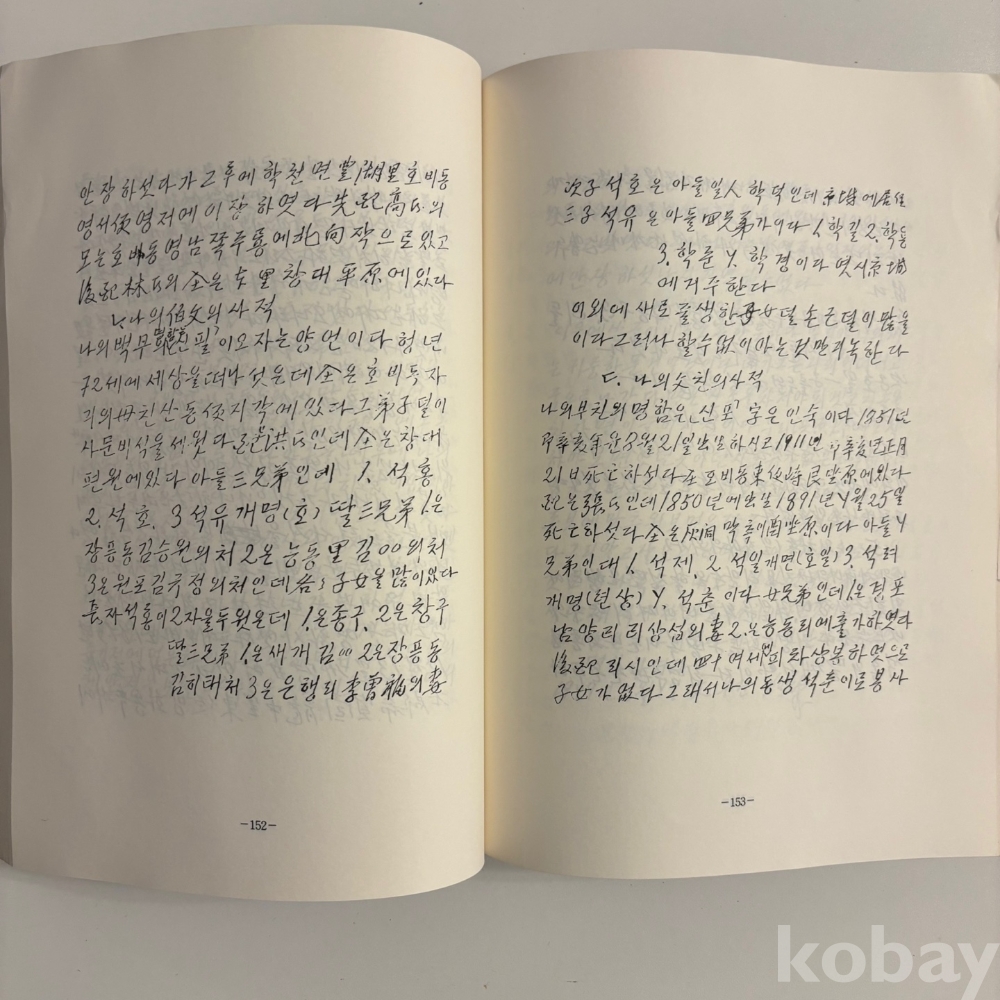 안장하섯다가 그 후에 학천면 豊湖里 호비동
영서便 영저에 이장하엿다 先配高氏의
모는 호비동 영남쪽 주룡에 北向작으로 있고
後配林氏의 仝은 东里 창대平原에 있다
ㄴ. 나의 伯父의 사적
나의 백부 필이오 자는 양언이다 형년
72세에 세상을 떠나셧은데 仝은 호비동 자
긔의 母친산 동便지각에 있다 그 弟子덜이
사문비식을 세웟다 配 洪氏인데 仝은 창대
편원에 있다 아들 三兄弟인데 1. 석홍
2. 석호. 3 석유 개명(호) 딸 三兄弟 1은
장픙동 김승원의 처 2은 능동里 김00의 처
3은 원포 김구정의 처인데 各々 子女을 많이 있다
長자 석홍이 2자을 두웟은데 1.은종구. 2.은창구
딸 三兄弟 1.은 새개 김00 2은 장픙동
김히태 처 3은 은행리 李曾福의 妻
-152-
次子 석호은 아들 일人 학덕인데 市場에 居住
三子 석유은 아들 四兄弟가이다 1. 학길 2. 학능
3. 학준 4. 학경이다 엿시 市場
에 거주한다
이외에 새로 출생한 子女덜 손은덜이 많을
이다 그러나 할 수 없이 아는 것만 긔록한다
ㄷ. 나의 父친의 사적
나의 부친의 명함은 「신포」 字은 인숙이다 1851년
辛亥年 윤 3월 21일 出생하시고 1911년 辛亥년 正月
21日 死亡하섯다 仝 호비동 東 艮坐原에 있다
配은 張氏인데 1850년에 出생 1891년 4월 25일
死亡하섯다 仝은 灰洞 막측에 酉坐原이다 아들 4
兄弟인대 1. 석제, 2. 석일 개면(호일) 3. 석려
개명(현상) 4. 석춘이다 女兄弟인데 1.은 검포
남양리 리상섭의 妻 2.은 능동리에 출가하엿다
後配 릐시인데 四十여세 와 상봉하엿으므
子女가 없다 그래서 나의 동생 석춘이로 봉사
-153-
kobay